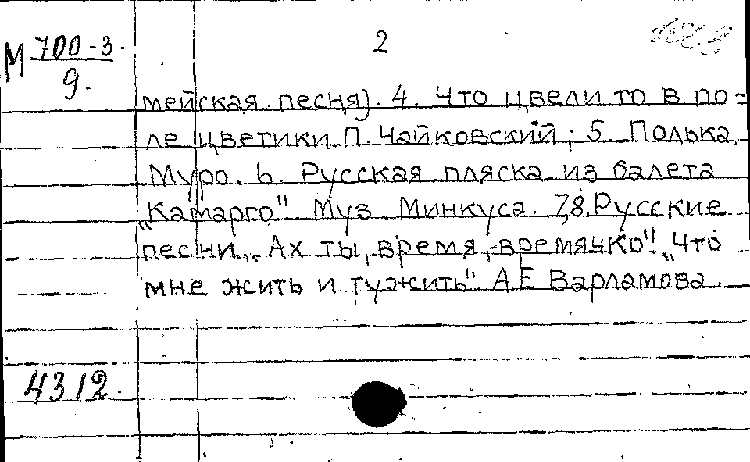 М 700-3
9.
2
мейская песня). 4. Что цвели то в по=
ле цветики П. Чайковский; 5. Полька.
Муро. 6. Русская пляска из балета
„Камарго" Муз Минкуса. 7,8. Русские
песни „Ах ты, время, времячко"! „Что
мне жить и тужить" А.Е Варламова
4312.